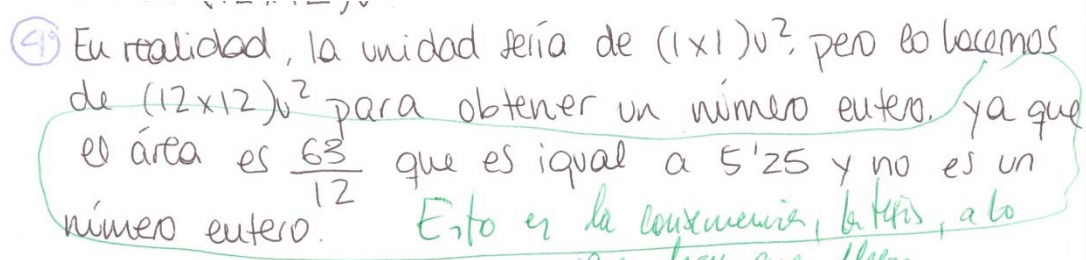 4º En realidad, la unidad sería de (1x1)u², pero lo hacemos
de (12x12)u² para obtener un número entero, ya que
el área es 63/12 que es igual a 5'25 y no es un
número entero. Esto es la consecuencia, la tesis, a lo
hay que